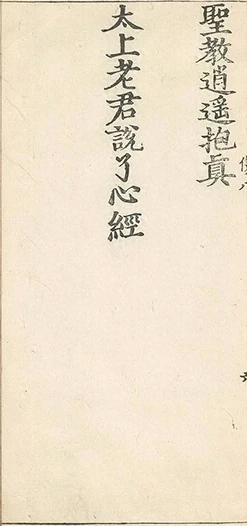 聖教逍遥抱眞
太上老君說了心經